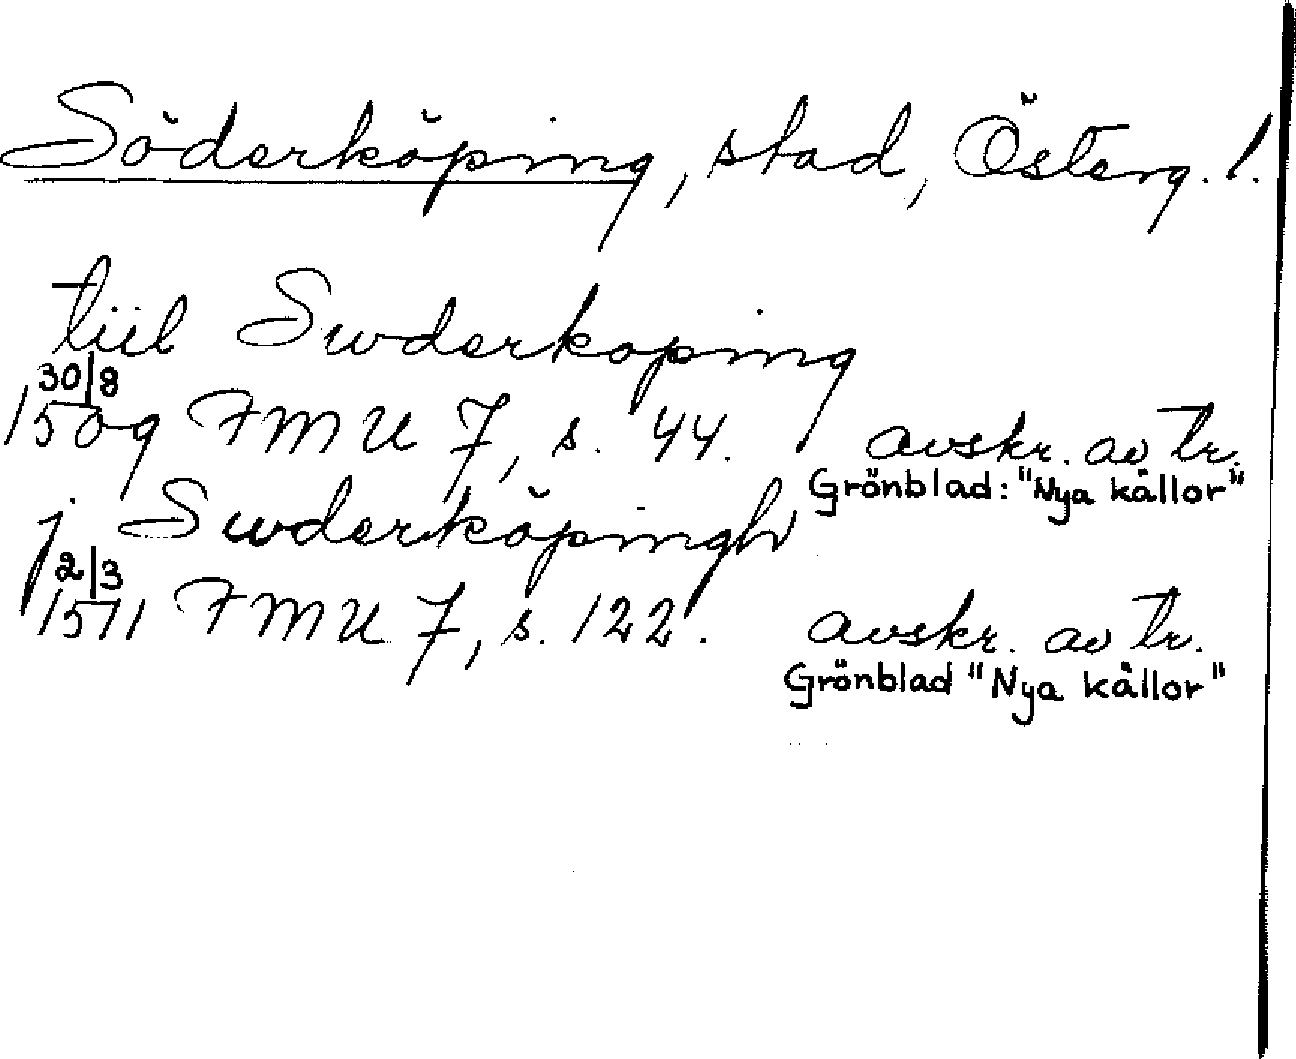 Söderköping, stad, Österg. l.
tiil Swderkoping
30/8
1509 FMU 7, s. 44. avskr. av tr.
Grönblad: "Nya källor"
j Swderköpingh
2/3
1511 FMU 7, s. 122. avskr. av tr.
Grönblad "Nya källor"